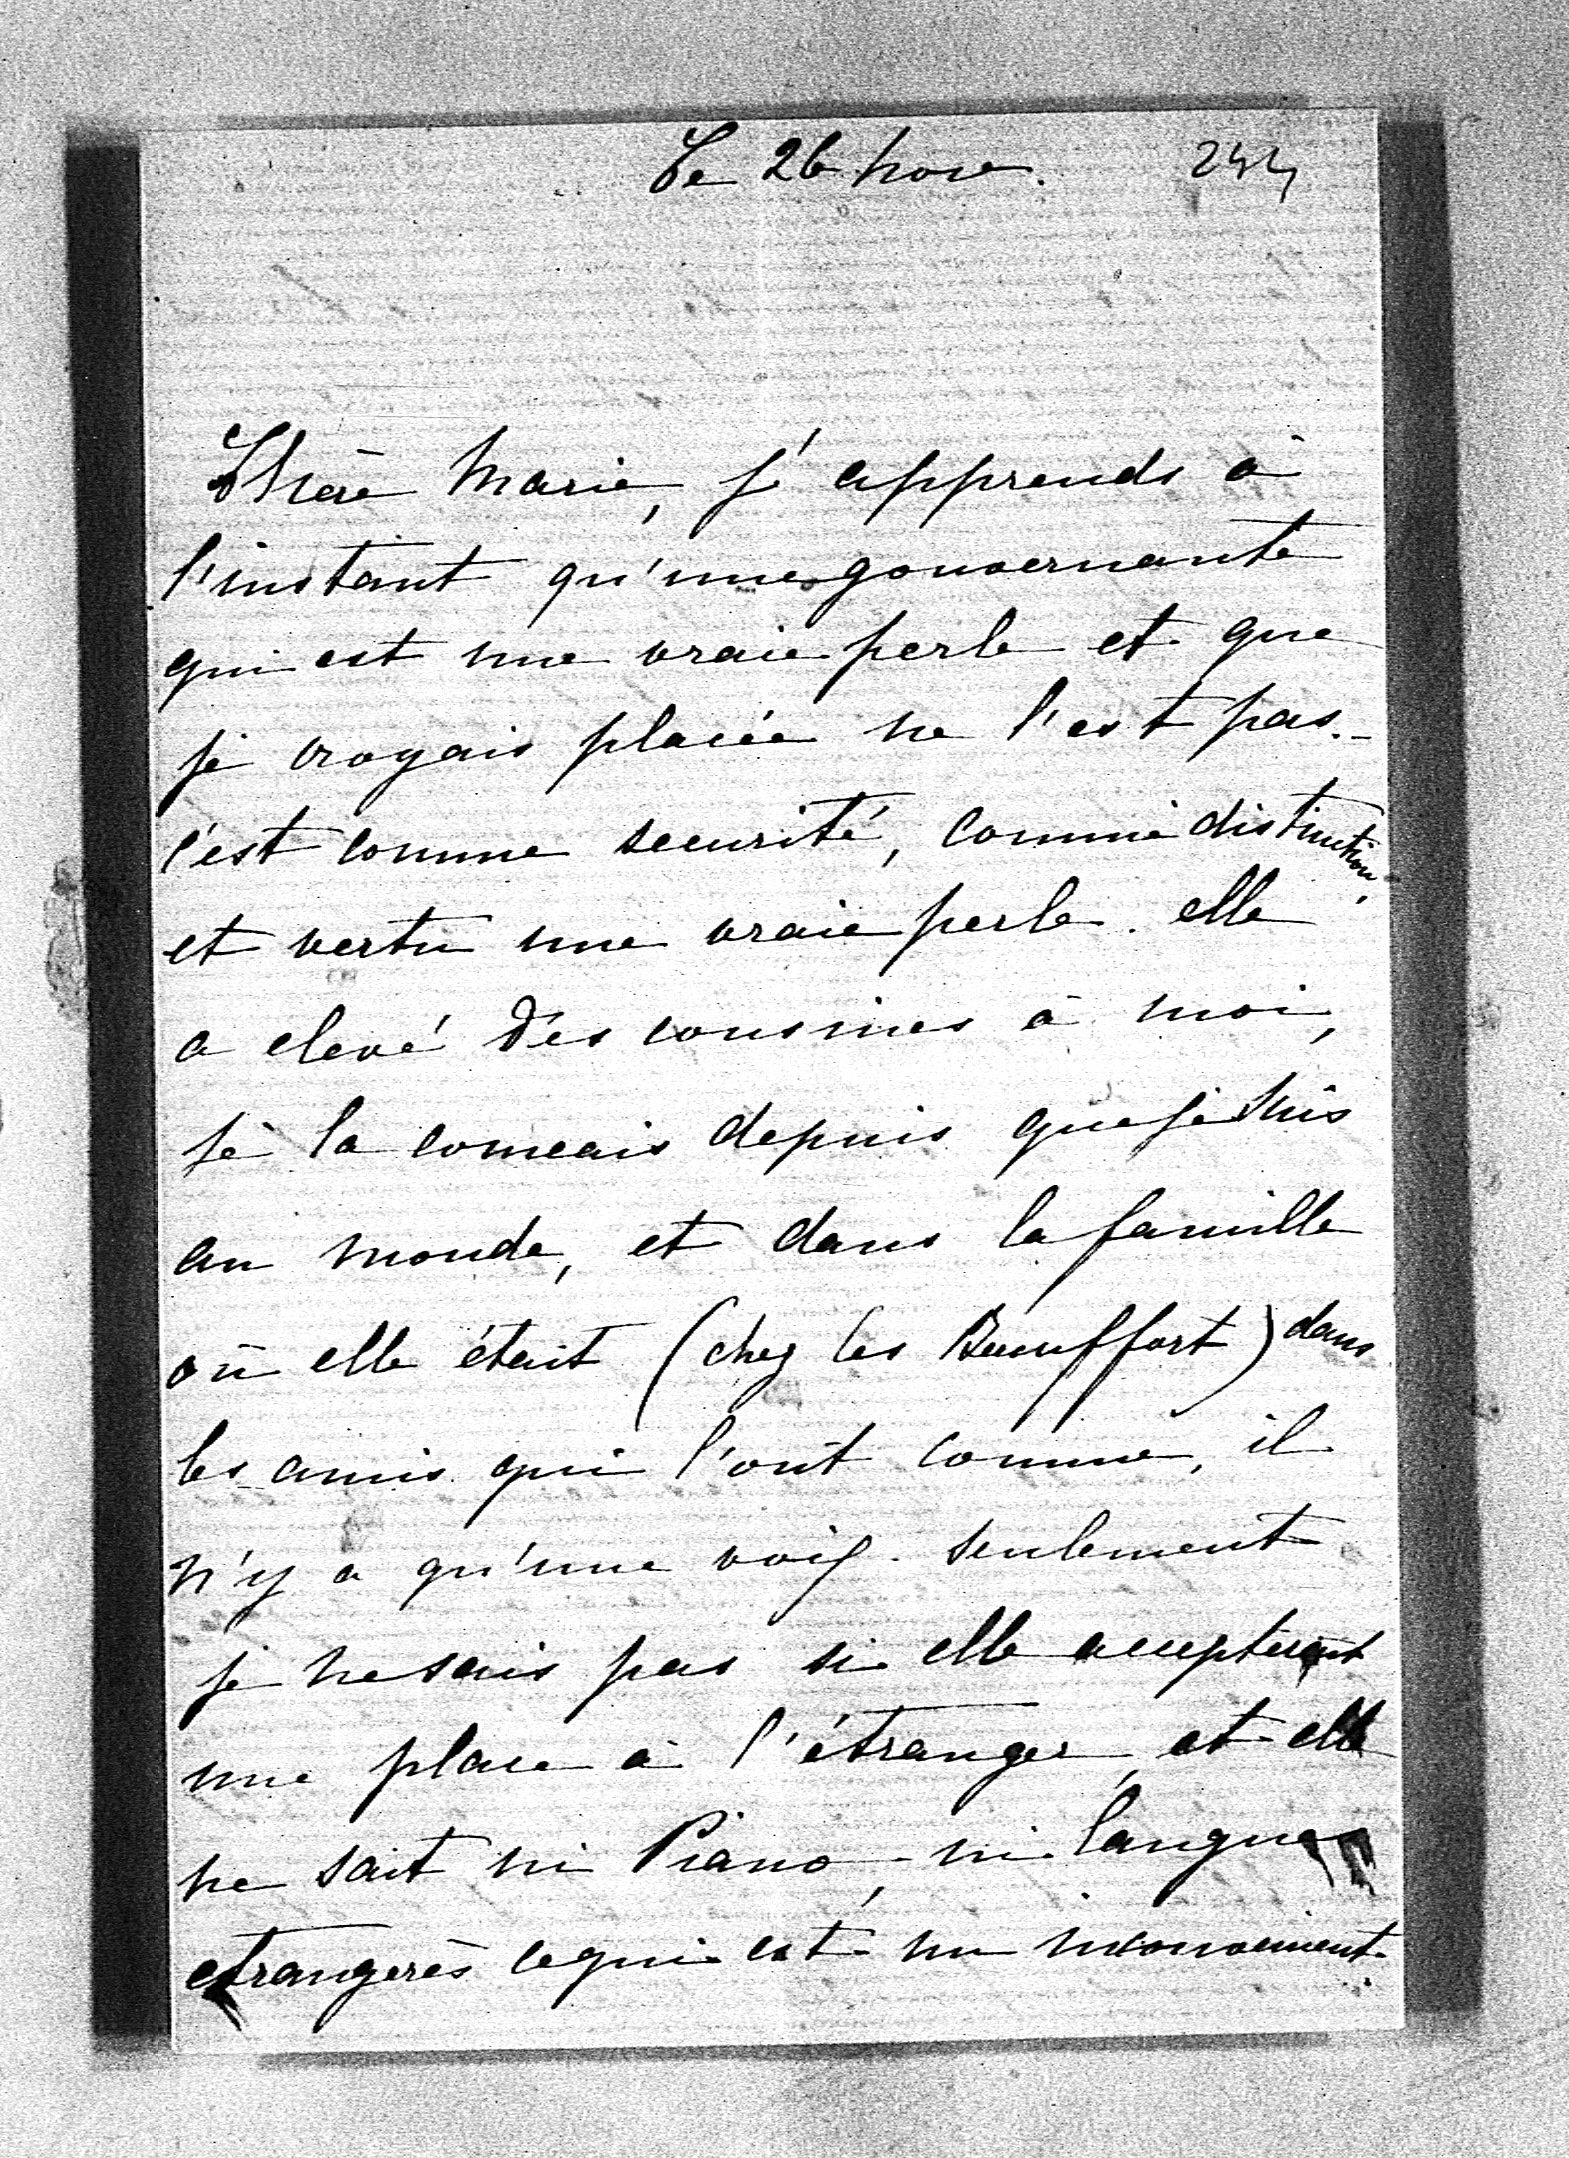 Le 26 nov. 244
Chère Marie, j'apprends à
l'instant qu'une gouvernante
qui est une vraie perle et que
je croyais placée ne l'est pas.
c'est comme securité, comme distinction
et vertu une vraie perle. elle
a elevé des cousines à moi,
je la connais depuis que je suis
au monde, et dans la famille
où elle était (chez les Beauffort) dans
les amis qui l'ont connue, il
n'y a qu'une voix. seulement
je ne sais pas si elle accepterait
une place à l'étranger, et elle
ne sait ni Piano, ni langues
etrangerès ce qui est un inconvenient